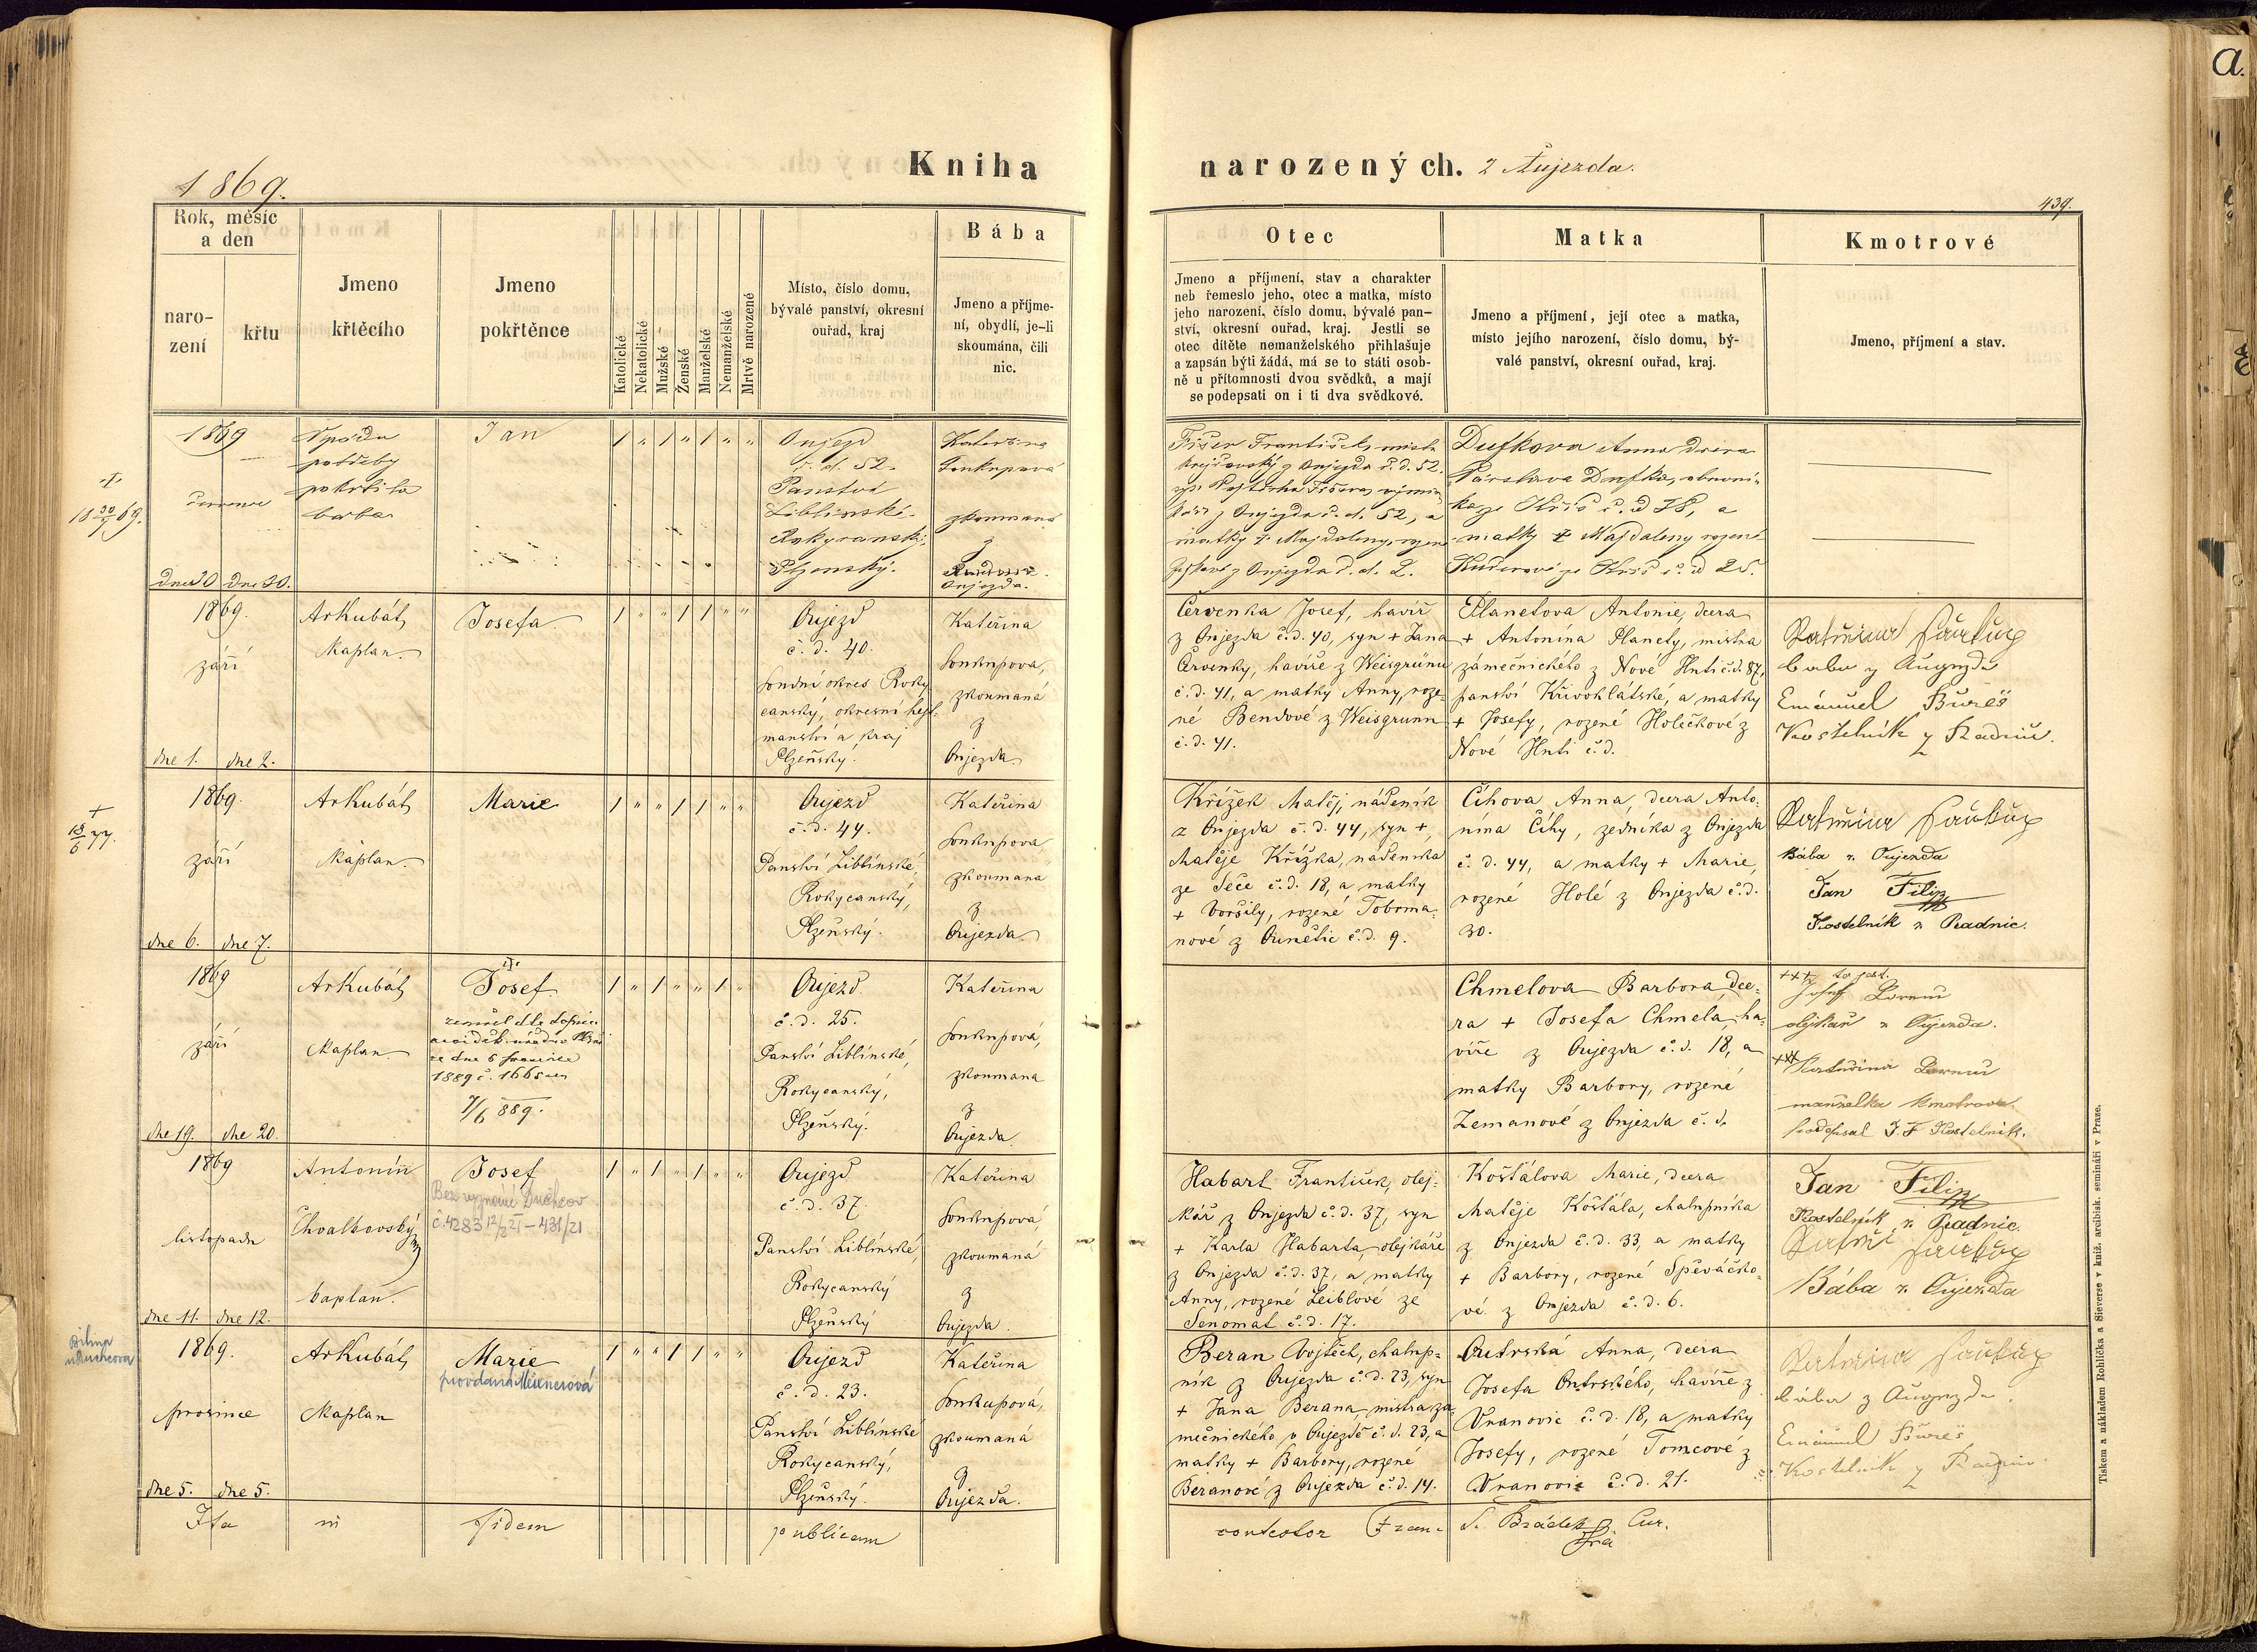 1869.
Kniha
narozených. z Aujezda.
439.
a.
Rok, měsíc
a den
naro-
zení
křtu
Jmeno
křtěcího
Jmeno
pokřtěnce
Katolické
Nekatolické
Mužské
Ženské
Manželské
Nemanželské
Mrtvě narozené
Místo, číslo domu,
bývalé panství, okresní
ouřad, kraj
Bába
Jmeno a příjme-
ní, obydlí, je-li
skoumána, čili
nic.
Otec
Jmeno a příjmení, stav a charakter
neb řemeslo jeho, otec a matka, místo
jeho narození, číslo domu, bývalé pan-
ství, okresní ouřad, kraj. Jestli se
otec dítěte nemanželského přihlašuje
a zapsán býti žádá, má se to státi osob-
ně u přítomnosti dvou svědků, a mají
se podepsati on i ti dva svědkové.
Matka
Jmeno a příjmení, její otec a matka,
místo jejího narození, číslo domu, bý-
valé panství, okresní ouřad, kraj.
Kmotrové
Jmeno, příjmení a stav.
1869
července
dne 30 dne 30.
potřeby
pokřtila
baba
Jan
Oujezd
č. d. 52.
Panství
Liblínské
Rokycanský,
Plzenský.
Kateřina
Soukupová
zkoumaná
z
Oujezda.
Fišer František, mistr
krejčovský z Oujezda č. d. 52.
syn Vojtěcha Fišera,
z Oujezda č. d. 52, a
matky + Majdaleny, rozené
z Oujezda č. d. 2.
Dufkova Anna dcera
Dufka,
č. d 38, a
matky + Majdaleny rozené
č. d 25.
1869.
září
dne 1. dne 2.
Ar Kubát,
Kaplan.
Josefa
Oujezd
č. d. 40.
soudní okres Roky
canský, okresní hejt-
manství a kraj
Plzeňský.
Kateřina
Soukupova,
zkoumaná
z
Oujezda.
Červenka Josef, havíř
z Oujezda č. d. 40, syn + Jana
Červenky, havíře z Weisgrünu
č. d. 41, a matky Anny, roze-
né Bendové z Weisgrunn
č. d. 41.
Planetova Antonie, dcera
+ Antonína Planety, mistra
zámečnického z Nové Huti č. d. 87,
panství Křivoklátské, a matky
+ Josefy, rozené Holečkové z
Nové Huti č. d.
baba z Augezda
Emánuel Bureš
Kostelník z Radnic.
+
18/6 77.
1869.
září
dne 6. dne 7.
Ar Kubát,
Kaplan.
Marie
Oujezd
č. d. 44.
Panství Liblínské,
Rokycanský,
Plzeňský.
Kateřina
Soukupova
zkoumana
z
Oujezda.
Křížek Matěj, nádeník
z Oujezda č. d. 44, syn +
Matěje Křížka, nádeníka
ze Seče č. d. 18, a matky
+ Voršily, rozené Tobrma-
nové z Ounětic č. d. 9.
Číhova Anna, dcera Anto-
nína Číhy, zedníka z Oujezda
č. d. 44, a matky + Marie,
rozené Holé z Oujezda č. d.
30.
Bába z Oujezda
Jan Filip
Kostelník z Radnic.
1869
září
dne 19. dne 20.
Ar Kubát,
Kaplan.
Josef
ze dne 6
1889 č. 166
7/6 889.
Oujezd
č. d. 25.
Panství Liblínské,
Rokycanský,
Plzeňský.
Kateřina
Soukupová,
zkoumana
z
Oujezda.
Chmelova Barbora, dce-
ra + Josefa Chmela, ha-
víře z Oujezda č. d. 18, a
matky Barbory, rozené
Zemanové z Oujezda č. d.
+++ to jest.
Josef
olejkař z Oujezda.
+++ Kateřina
manželka kmotrova.
podepsal J. F Kostelník.
1869
listopadu
dne 11. dne 12.
Antonín
Chvalkovský
kaplan.
Josef
Bez vyznání Duchcov
č. 4283 12/2 21 – 431/21
Oujezd
č. d. 37.
Panství Liblínské,
Rokycanský
Plzeňský
Kateřina
Soukupová,
zkoumaná
z
Oujezda.
Habart František, olej-
kář z Oujezda č. d. 37, syn
+ Karla Habarta, olejkáře
z Oujezda č. d. 37, a matky
Anny, rozené Leiblové ze
Senomat č. d. 17.
Košťálova Marie, dcera
Matěje Košťála, chalupníka
z Oujezda č. d. 33, a matky
+ Barbory, rozené Spěváčko-
vé z Oujezda č. d. 6.
Jan Filip
Kostelník z Radnic.
Bába z Oujezda
1869.
prosince
dne 5. dne 5.
Ar Kubát,
Kaplan
Marie
Oujezd
č. d. 23.
Panství Liblínské
Rokycanský,
Plzeňský.
Kateřina
Soukupová,
zkoumaná
z
Oujezda.
Beran Vojtěch, chalup-
ník z Oujezda č. d. 23, syn
+ Jana Berana, mistra zá-
mečnického v Oujezdě č. d. 23, a
matky + Barbory, rozené
Beranové z Oujezda č. d. 14.
Outrská Anna, dcera
Josefa Outrského, havíře z
Vranovic č. d. 18, a matky
Josefy, rozené Tomcové z
Vranovic č. d. 21.
bába z Augezda.
Emánuel Bureš
Kostelník z Radnic.
Ita in fidem publicam
contestor Fran. S. Cur.
Tiskem a nákladem Rohlíčka a Sieverse v kníž. arcibisk. semináři v Praze.